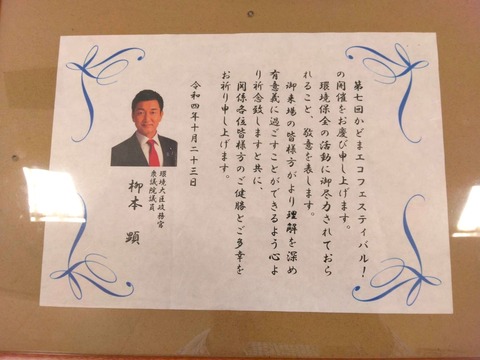 第七回かどまエコフェスティバル！
の開催をお慶び申し上げます。
環境保全の活動に御尽力されておら
れること、敬意を表します。
御来場の皆様方がより理解を深め
有意義に過ごすことができるよう心よ
り祈念致しますと共に、
関係各位皆様方のご健勝とご多幸を
お祈り申し上げます。
令和四年十月二十三日
環境大臣政務官
衆議院議員
柳本 顕